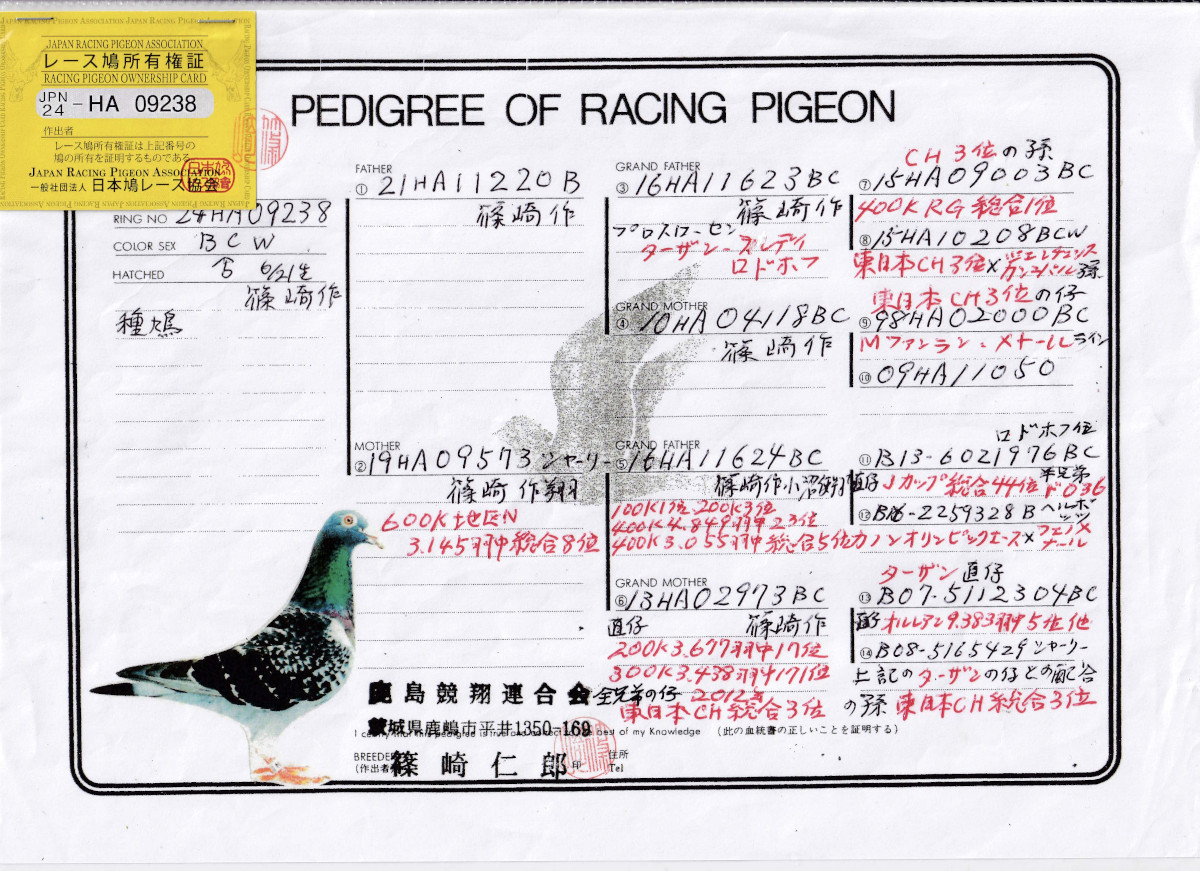 JAPAN RACING PIGEON ASSOCIATION
レース鳩所有権証
RACING PIGEON OWNERSHIP CARD
JPN
24 - HA 09238
作出者
レース鳩所有権証は上記番号の
鳩の所有を証明するものである
JAPAN RACING PIGEON ASSOCIATION
一般社団法人 日本鳩レース協会
PEDIGREE OF RACING PIGEON
RING NO 24HA09238
COLOR SEX BCW
HATCHED 6/21生
篠崎作
種鳩
FATHER
① 21HA11220B
篠崎作
MOTHER
② 19HA09573 シャーリー
篠崎作翔
600K地区N
3.145羽中総合8位
GRAND FATHER
③ 16HA11623BC
篠崎作
プロスローセン
ターザン-フレディ
ロドホフ
GRAND MOTHER
④ 10HA04118BC
篠崎作
GRAND FATHER
⑤ 16HA11624BC
篠崎作
100K1位 200K3位
400K4.849羽中23位
400K3.055羽中総合5位
GRAND MOTHER
⑥ 13HA02973BC
直仔 篠崎作
200K3.677羽中17位
300K3.438羽中171位
全兄弟の仔 2012年
東日本CH総合3位
CH3位の孫
⑦ 15HA09003BC
400KRG総合1位
⑧ 15HA10208BCW
東日本CH3位×
孫
東日本CH3位の仔
⑨ 98HA02000BC
Mファンラン・メナールライン
⑩ 09HA11050
ロドホフ位
⑪ B13-6021976BC
直仔 Jカップ総合44位 半兄弟 ド036
⑫ B06-2259328B ヘルボッツ
カノンオリンピックエース×フェノメナール
ターザン直仔
⑬ B07-5112304BC
直仔 オルレアン9.383羽中5位他
⑭ B08-5165429 シャーリー
上記のターザンの仔との配合
の孫 東日本CH総合3位
鹿島競翔連合会
茨城県鹿嶋市平井1350-169
I certify that this pedigree is true and correct to the best of my Knowledge (此の血統書の正しいことを証明する)
BREEDER
(作出者) 篠崎仁郎 印
住所
Tel